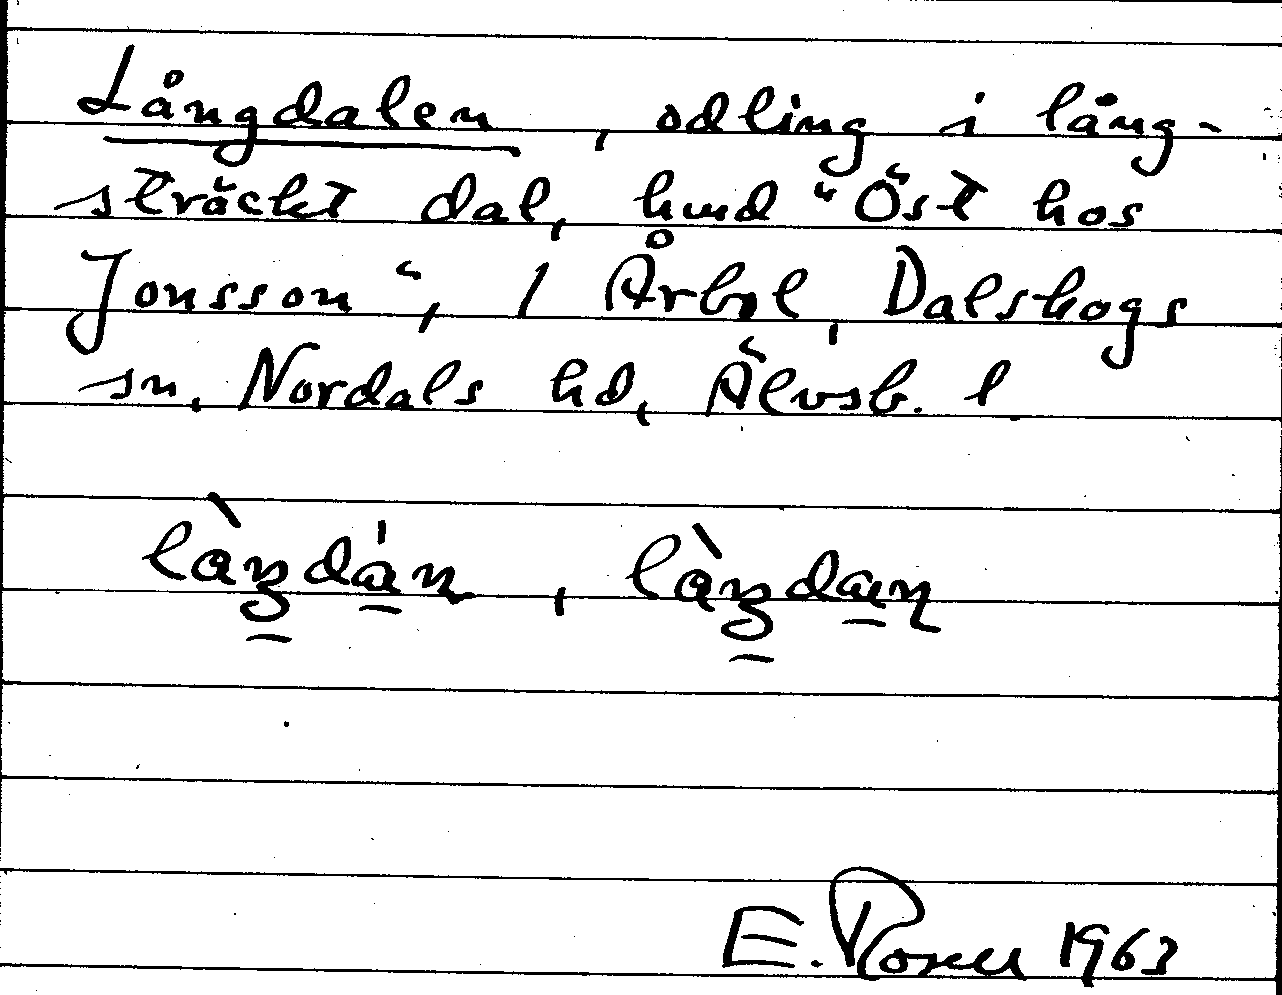 Långdalen, odling i lång-
sträckt dal, hmd "Öst hos
Jonsson", 1 Årbol, Dalskogs
sn. Nordals hd, Älvsb. l.
E. Rosell 1963